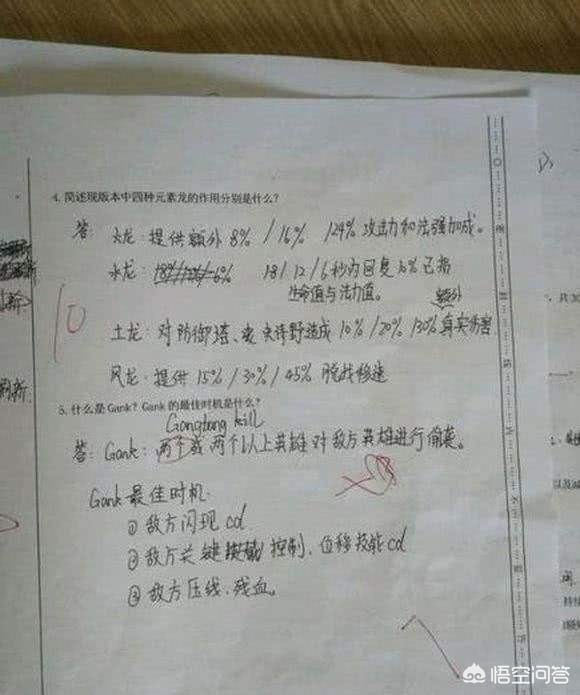 4. 简述现版本中四种元素龙的作用分别是什么?
答: 火龙: 提供额外 8% / 16% / 24% 攻击力和法强加成。
水龙: 18 / 12 / 6 秒内回复 10% 已损
生命值与法力值。
额外
土龙: 对防御塔、史诗野造成 10% / 20% / 30% 真实伤害
风龙: 提供 15% / 30% / 45% 脱战移速
10
5. 什么是Gank? Gank 的最佳时机是什么?
Gangtong kill
答: Gank: 两个或两个以上英雄对敌方英雄进行偷袭。
Gank 最佳时机:
① 敌方闪现 cd
② 敌方关键 控制、位移技能 cd
③ 敌方压线、残血。
刷新.
以及
持续
悟空问答